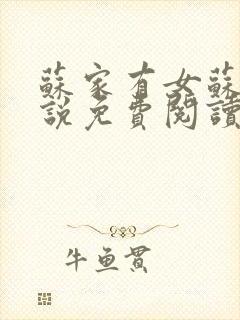 蘇家有女蘇
說免費閱讀
牛魚貫